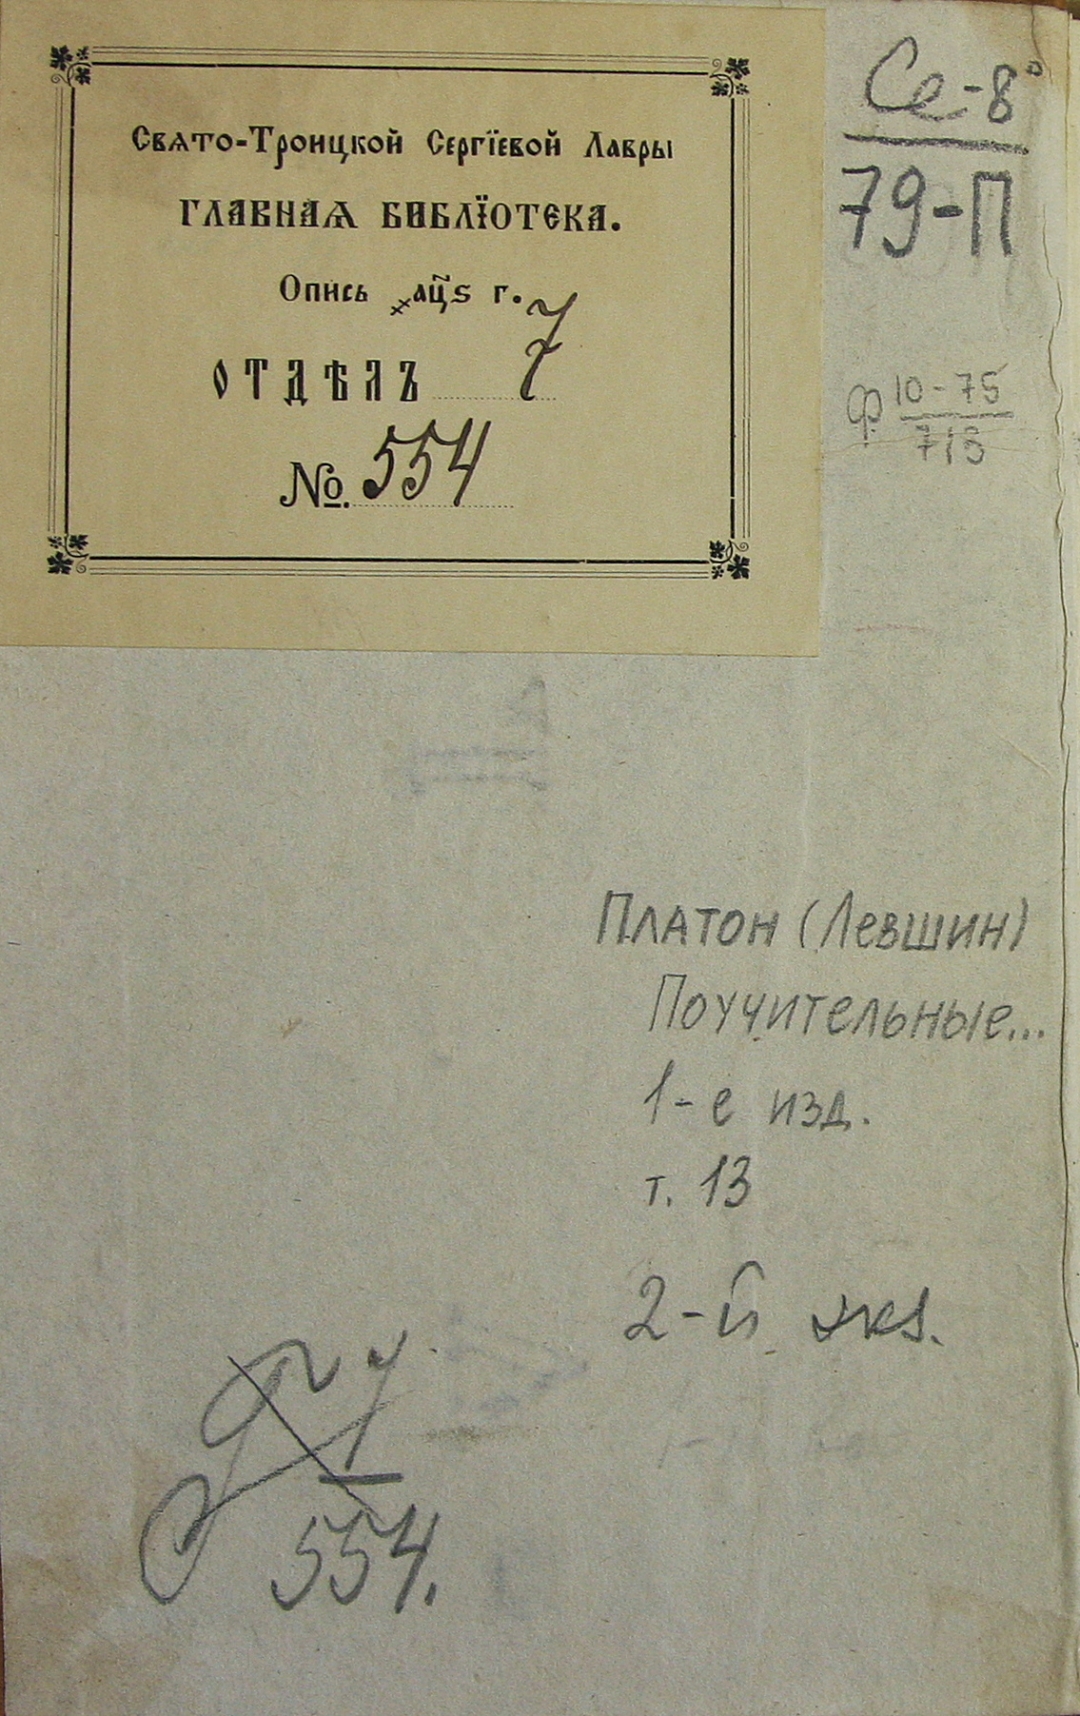 Свято-Троицкой Сергїевой Лавры
ГЛАВНАѦ БИБЛЇОТЕКА.
Опись ҂ац҃ѕ г.
ОТДѢЛЪ 7
№. 554
Се-8°
79-П
Ф. 10-75
713
Платон (Левшин)
Поучительные...
1-е изд.
т. 13
2-й экз.
7
554.